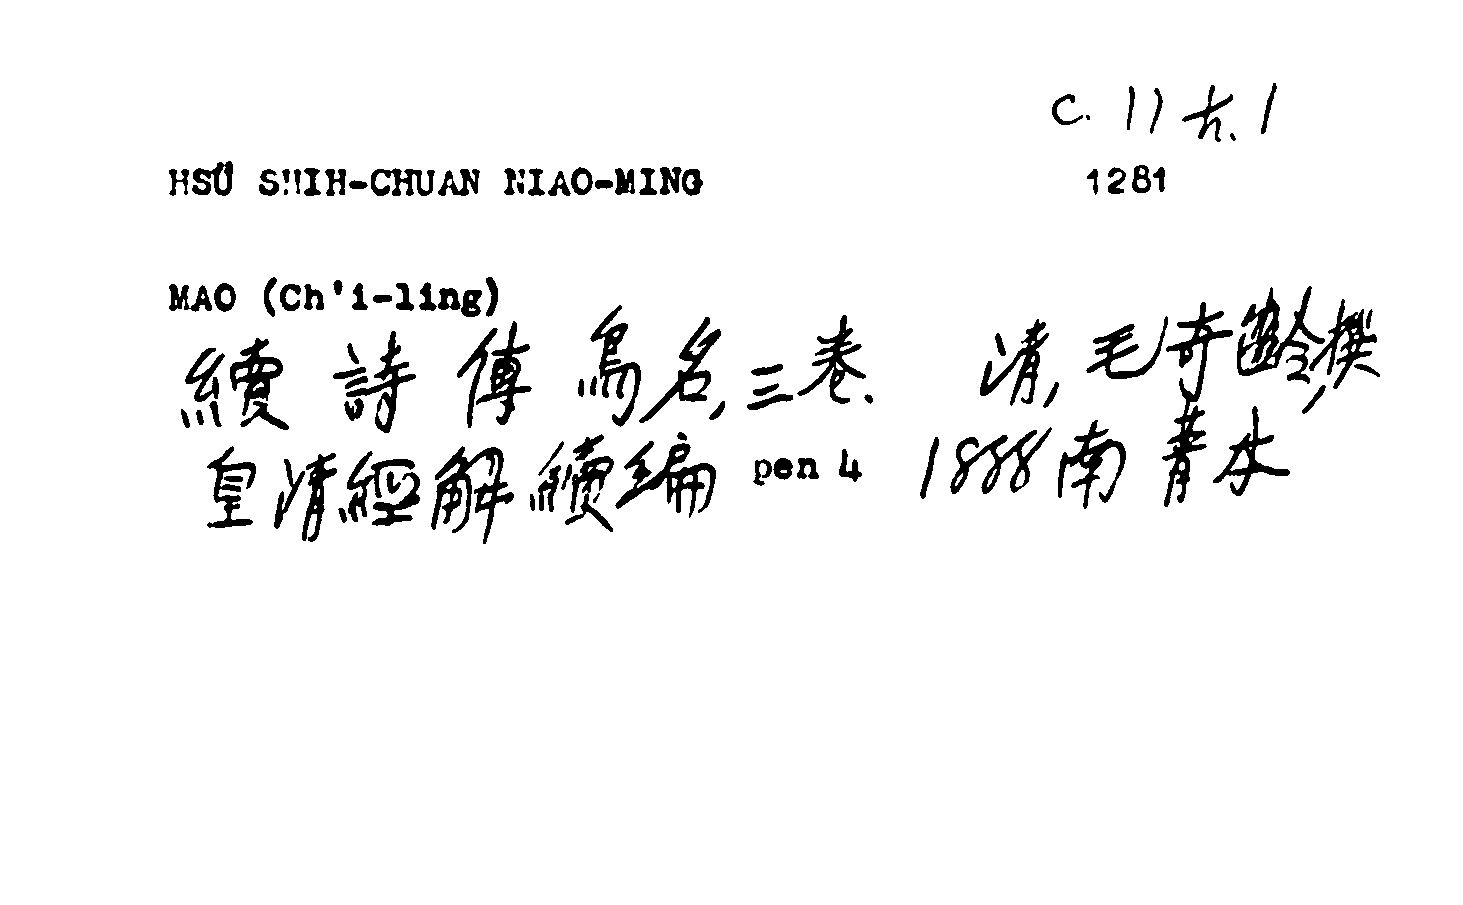 C. 11 
HSÜ SHIH-CHUAN NIAO-MING 1281
MAO (Ch'i-ling)
續詩傳鳥名, 三卷. 清, 毛奇齡撰
皇清經解續編 pen 4 1888 南菁本